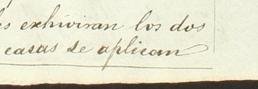 es exhiviran los dos
casas de aplican